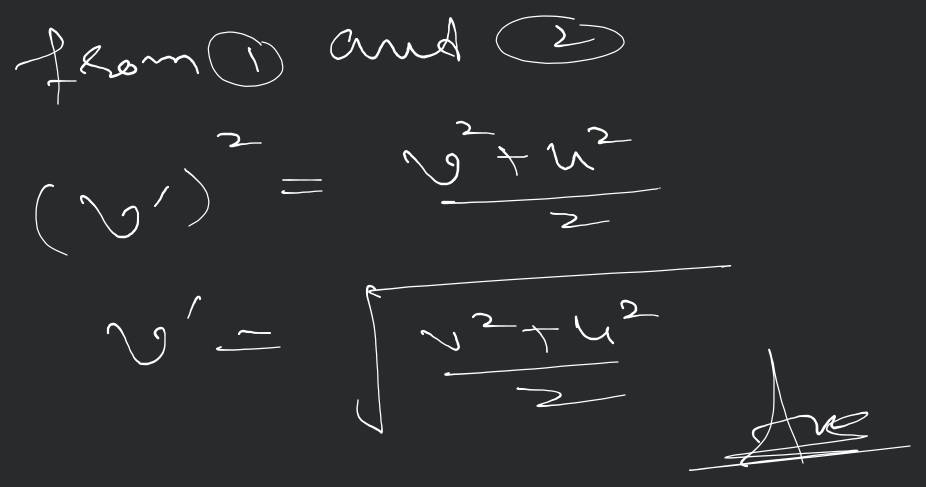 from ① and ②
(v')² = (v² + u²)/2
v' = √((v² + u²)/2)
Ans